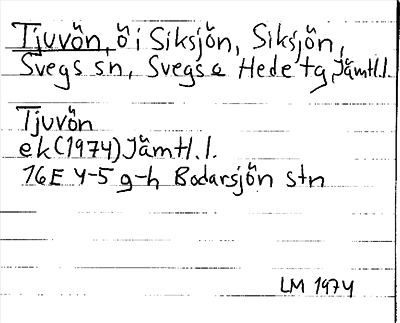 Tjuvön, ö i Siksjön, Siksjön,
Svegs sn, Svegs o Hede tg, Jämtl.l.
Tjuvön
ek (1974) Jämtl.l.
16E 4-5 g-h Bodarsjön stn
LM 1974